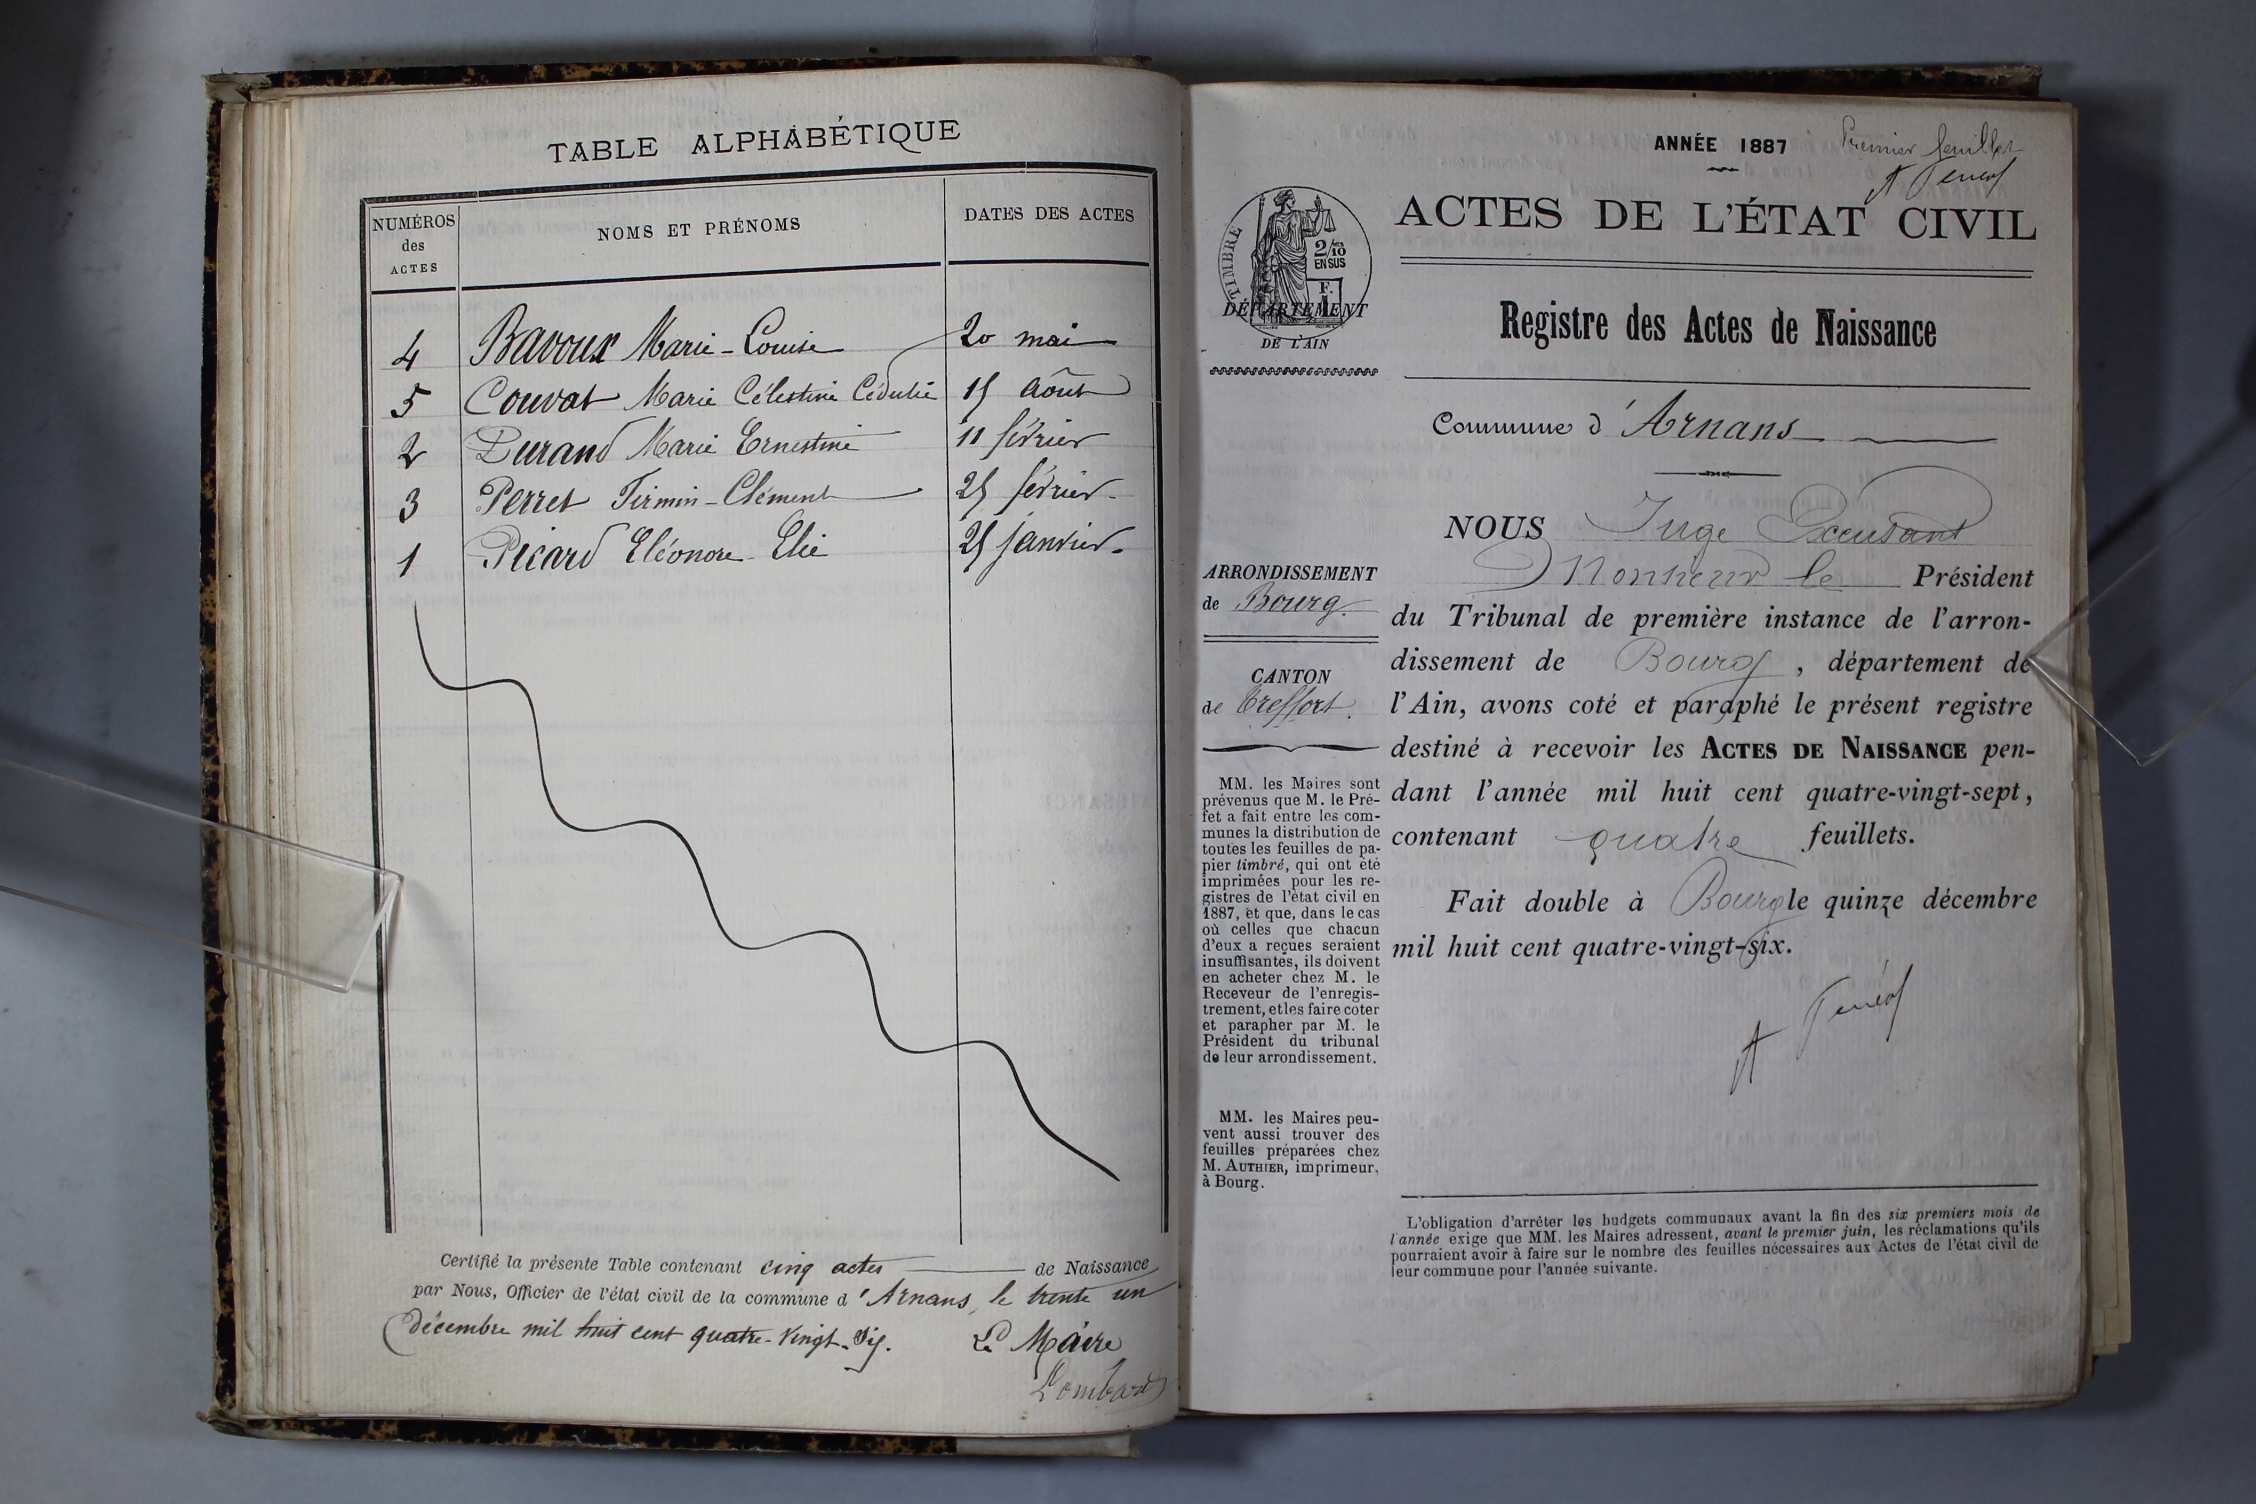 TABLE ALPHABÉTIQUE
NUMÉROS
des
ACTES
NOMS ET PRÉNOMS
DATES DES ACTES
4 Bavoux Marie-Louise 20 mai
5 Couvat Marie Célestine Cédulie 15 Août
2 Durand Marie Ernestine 11 février
3 Perret Firmin-Clément 25 février
1 Picard Eléonore Elie 25 janvier
Certifié la présente Table contenant cinq actes de Naissance
par Nous, Officier de l'état civil de la commune d'Arnans, le trente un
décembre mil huit cent quatre-vingt-six.
Le Maire
Lombard
ANNÉE 1887
Premier feuillet
ACTES DE L'ÉTAT CIVIL
TIMBRE
2/10
EN SUS
F.
1
DÉPARTEMENT
DE L'AIN
Registre des Actes de Naissance
Commune d'Arnans
ARRONDISSEMENT
de Bourg
CANTON
de Treffort.
MM. les Maires sont
prévenus que M. le Pré-
fet a fait entre les com-
munes la distribution de
toutes les feuilles de pa-
pier timbré, qui ont été
imprimées pour les re-
gistres de l'état civil en
1887, et que, dans le cas
où celles que chacun
d'eux a reçues seraient
insuffisantes, ils doivent
en acheter chez M. le
Receveur de l'enregis-
trement, et les faire coter
et parapher par M. le
Président du tribunal
de leur arrondissement.
MM. les Maires peu-
vent aussi trouver des
feuilles préparées chez
M. AUTHIER, imprimeur,
à Bourg.
NOUS Juge Excusant
Monsieur le Président
du Tribunal de première instance de l'arron-
dissement de Bourg, département de
l'Ain, avons coté et paraphé le présent registre
destiné à recevoir les ACTES DE NAISSANCE pen-
dant l'année mil huit cent quatre-vingt-sept,
contenant quatre feuillets.
Fait double à Bourg le quinze décembre
mil huit cent quatre-vingt-six.
L'obligation d'arrêter les budgets communaux avant la fin des six premiers mois de
l'année exige que MM. les Maires adressent, avant le premier juin, les réclamations qu'ils
pourraient avoir à faire sur le nombre des feuilles nécessaires aux Actes de l'état civil de
leur commune pour l'année suivante.